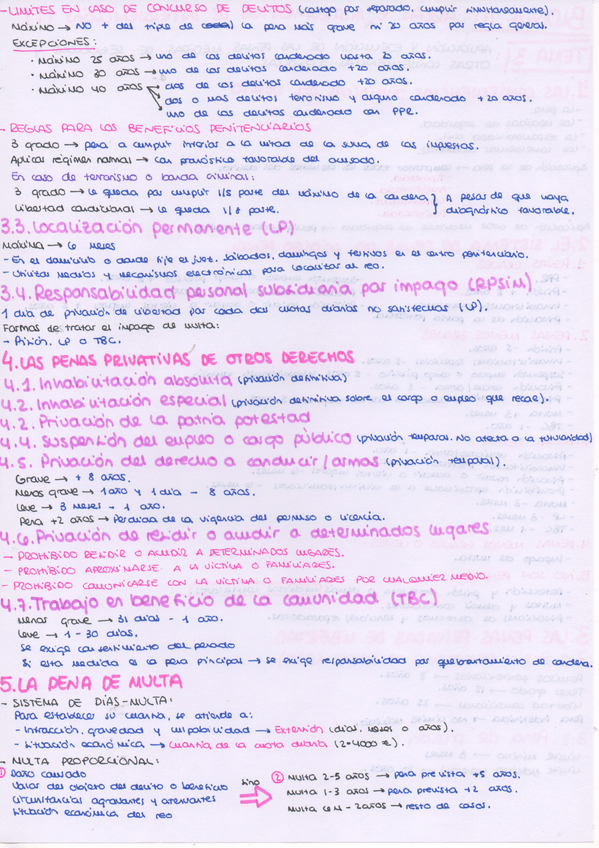 - LIMITES EN CASO DE CONCURSO DE DELITOS (castigo por separado, cumplir simultáneamente).
Máximo → NO + del triple de la pena más grave ni 20 años por regla general.
EXCEPCIONES:
· Máximo 25 años → uno de los delitos condenado hasta 20 años.
· Máximo 30 años → uno de los delitos condenado +20 años.
· Máximo 40 años → dos de los delitos condenado +20 años.
dos o más delitos terrorismo y alguno condenado +20 años.
uno de los delitos condenado con PPR.
- REGLAS PARA LOS BENEFICIOS PENITENCIARIOS
3 grado → pena a cumplir inferior a la mitad de la suma de las impuestas.
Aplicar régimen normal → con pronóstico favorable del acusado.
En caso de terrorismo o banda criminal:
3 grado → le queda por cumplir 1/5 parte del máximo de la condena } A pesar de que haya
Libertad condicional → le queda 1/8 parte. diagnóstico favorable.
3.3. Localización permanente (LP)
Máxima → 6 meses
- En el domicilio o donde fije el juez, sábados, domingos y festivos en el centro penitenciario.
- Utilizar medios y mecanismos electrónicos para localizar al reo.
3.4. Responsabilidad personal subsidiaria por impago (RPSIM)
1 día de privación de libertad por cada dos cuotas diarias no satisfechas (LP).
Formas de tratar el impago de multa:
- Prisión, LP o TBC.
4. LAS PENAS PRIVATIVAS DE OTROS DERECHOS
4.1. Inhabilitación absoluta (privación definitiva)
4.2. Inhabilitación especial (privación definitiva sobre el cargo o empleo que recae).
4.2. Privación de la patria potestad
4.4. Suspensión del empleo o cargo público (privación temporal. No afecta a la titularidad)
4.5. Privación del derecho a conducir/armas (privación temporal).
Grave → + 8 años.
Menos grave → 1 año y 1 día - 8 años.
Leve → 3 meses - 1 año.
Pena +2 años → Pérdida de la vigencia del permiso o licencia.
4.6. Privación de residir o acudir a determinados lugares
- PROHIBIDO RESIDIR O ACUDIR A DETERMINADOS LUGARES.
- PROHIBIDO APROXIMARSE A LA VÍCTIMA O FAMILIARES.
- PROHIBIDO COMUNICARSE CON LA VÍCTIMA O FAMILIARES POR CUALQUIER MEDIO.
4.7. Trabajo en beneficio de la comunidad (TBC)
Menos grave → 31 días - 1 año.
Leve → 1 - 30 días.
Se exige consentimiento del penado
Si esta medida es la pena principal → se exige responsabilidad por quebrantamiento de condena.
5. LA PENA DE MULTA
- SISTEMA DE DÍAS-MULTA:
Para establecer su cuantía, se atiende a:
- Infracción, gravedad y culpabilidad → Extensión (días, meses o años).
- Situación económica → Cuantía de la cuota diaria (2-400 €).
- MULTA PROPORCIONAL:
① Daño causado
Valor del objeto del delito o beneficio
Circunstancias agravantes y atenuantes
Situación económica del reo
Sino
② Multa 2-5 años → pena prevista +5 años.
Multa 1-3 años → pena prevista +2 años.
Multa 6M - 2 años → resto de casos.